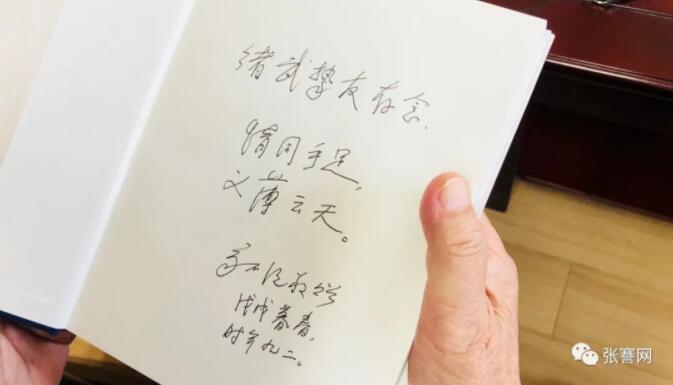 绪武挚友存念.
情同手足,
义薄云天。
敬赠
戊戌暮春,
时年九二。
张謇网